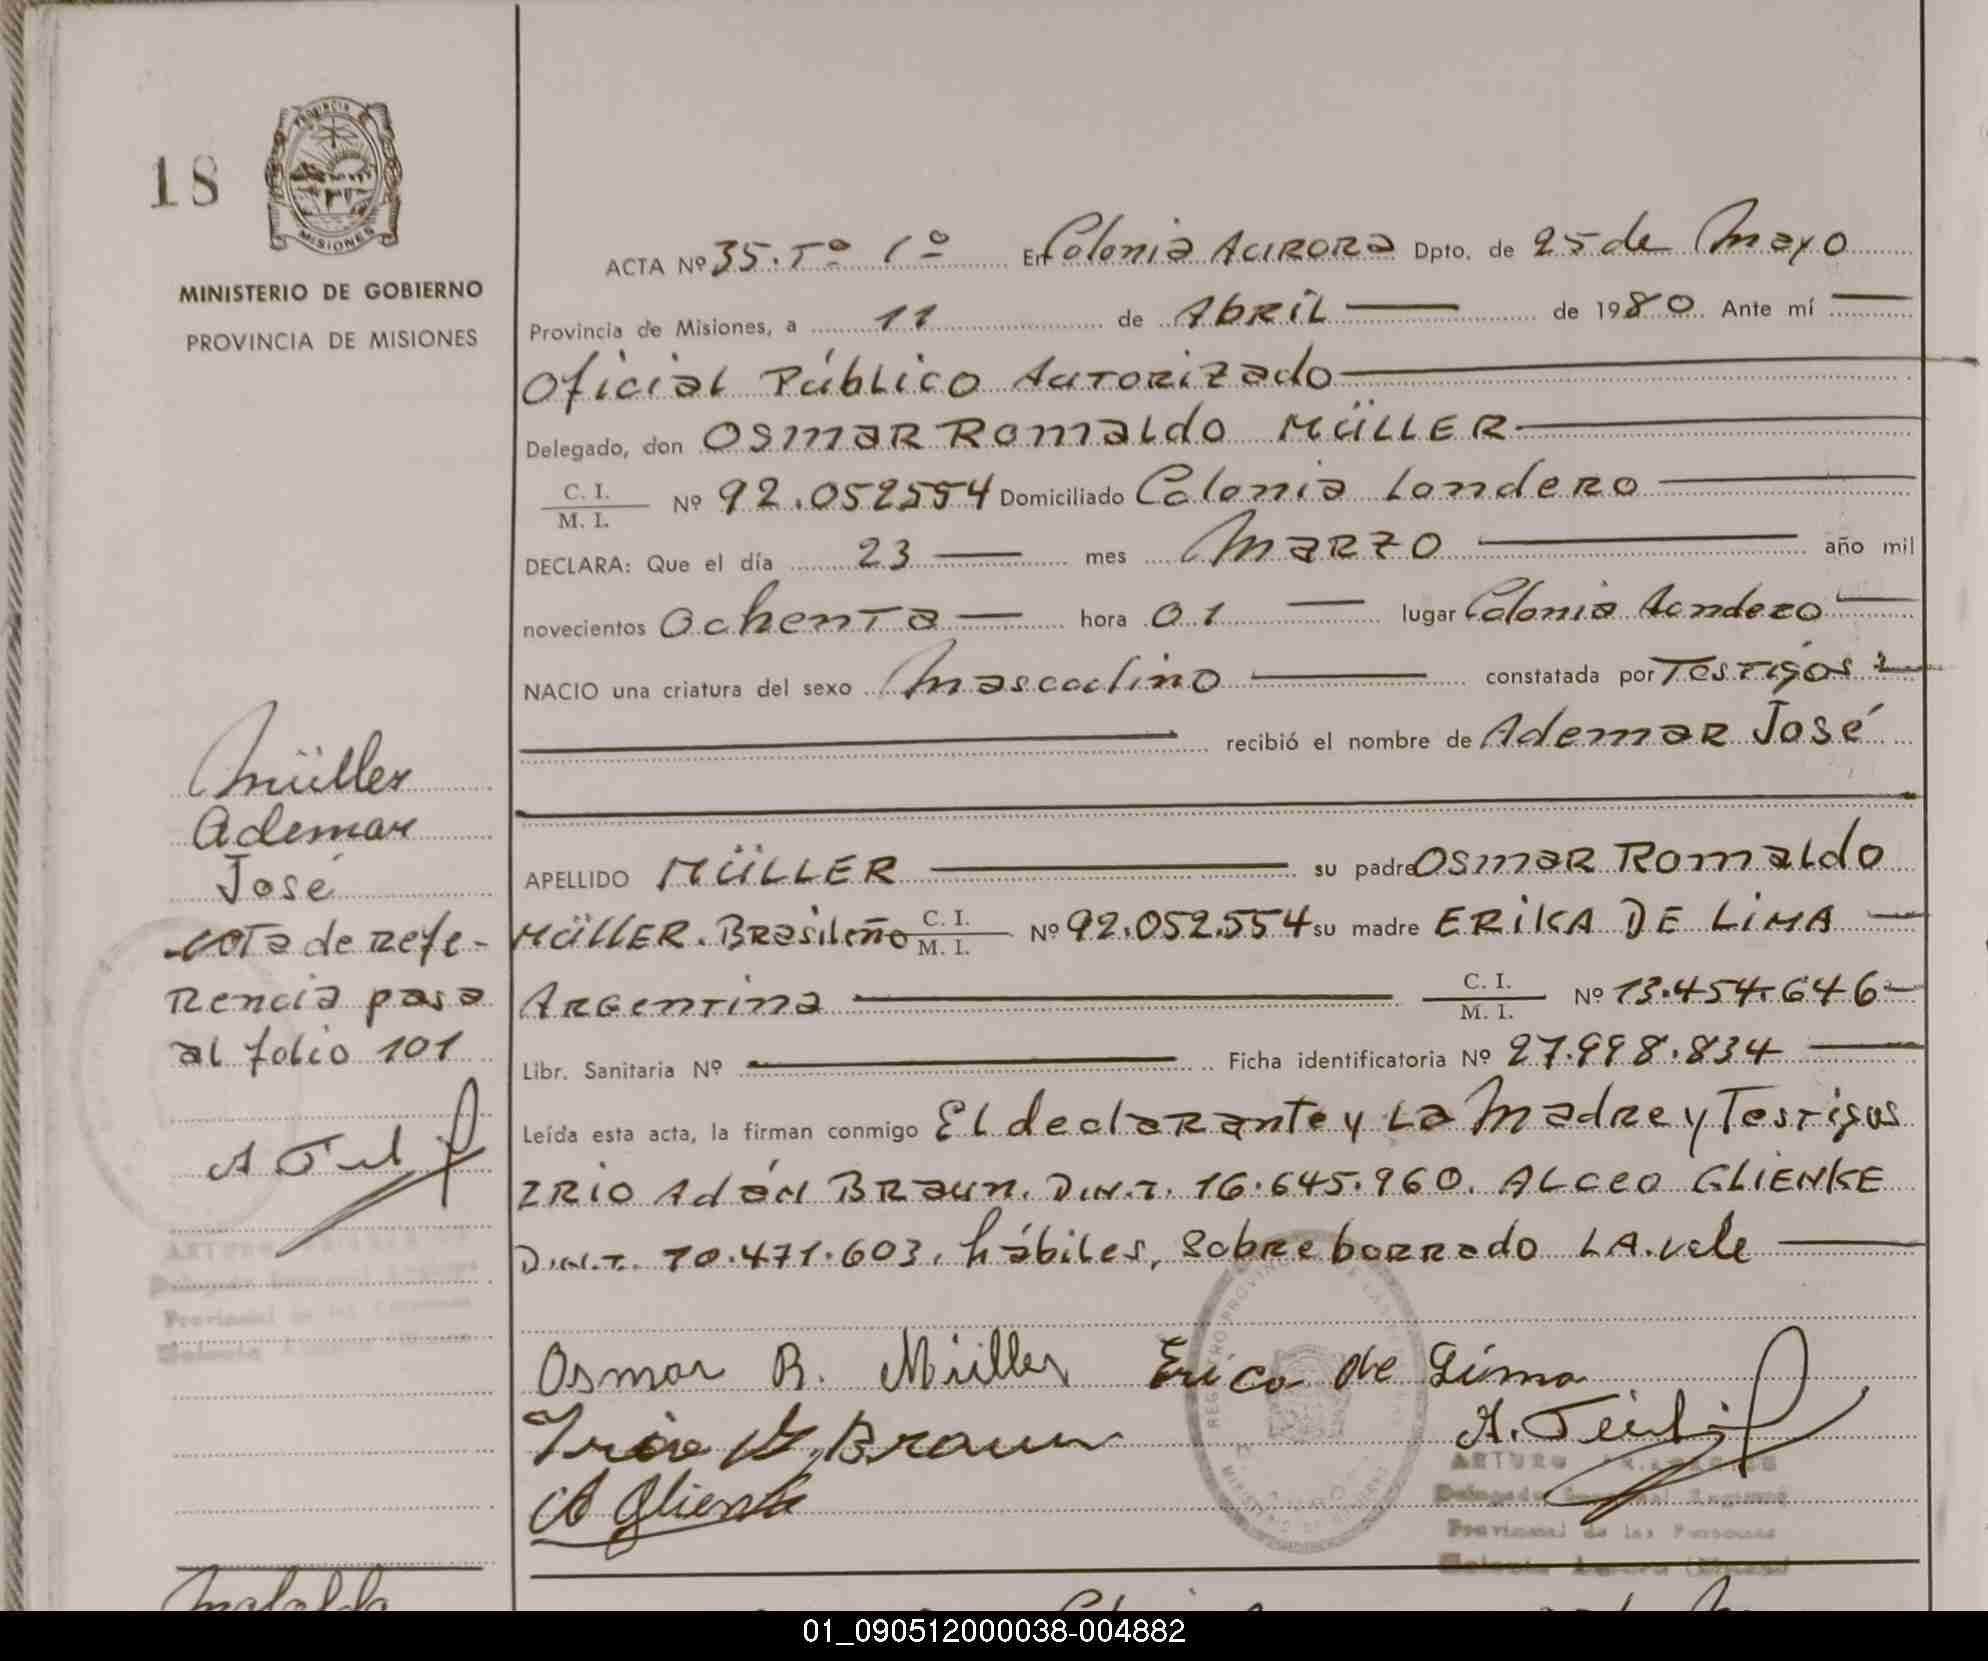 18
PROVINCIA
MISIONES
MINISTERIO DE GOBIERNO
PROVINCIA DE MISIONES
ACTA Nº 35. Tº 1º En Colonia Aurora Dpto. de 25 de Mayo
Provincia de Misiones, a 11 de Abril de 1980 Ante mí
Oficial Público Autorizado
Delegado, don Osmar Romaldo MÜLLER
C. I.
M. I. Nº 92.052554 Domiciliado Colonia Londero
DECLARA: Que el día 23 mes Marzo año mil
novecientos Ochenta hora 01 lugar Colonia Londero
NACIO una criatura del sexo Masculino constatada por Testigos
recibió el nombre de Ademar José
APELLIDO MÜLLER su padre Osmar Romaldo
MÜLLER. Brasileño C. I.
M. I. Nº 92.052.554 su madre ERIKA DE LIMA
Argentina C. I.
M. I. Nº 13.454.646
Libr. Sanitaria Nº Ficha identificatoria Nº 27.998.834
Leída esta acta, la firman conmigo El declarante y La Madre y Testigos
IRIO Adán Braun. D.N.I. 16.645.960. ALCEO GLIENKE
D.N.I. 10.471.603. hábiles, Sobre borrado LA. vale
Müller
Ademar
José
Nota de refe-
Rencia pasa
al folio 101
Osmar R. Müller Erica de Lima
Irio A. Braun
A Glienke
ARTURO
Delegado Registro
Provincial de las Personas
Colonia Aurora
01_090512000038-004882